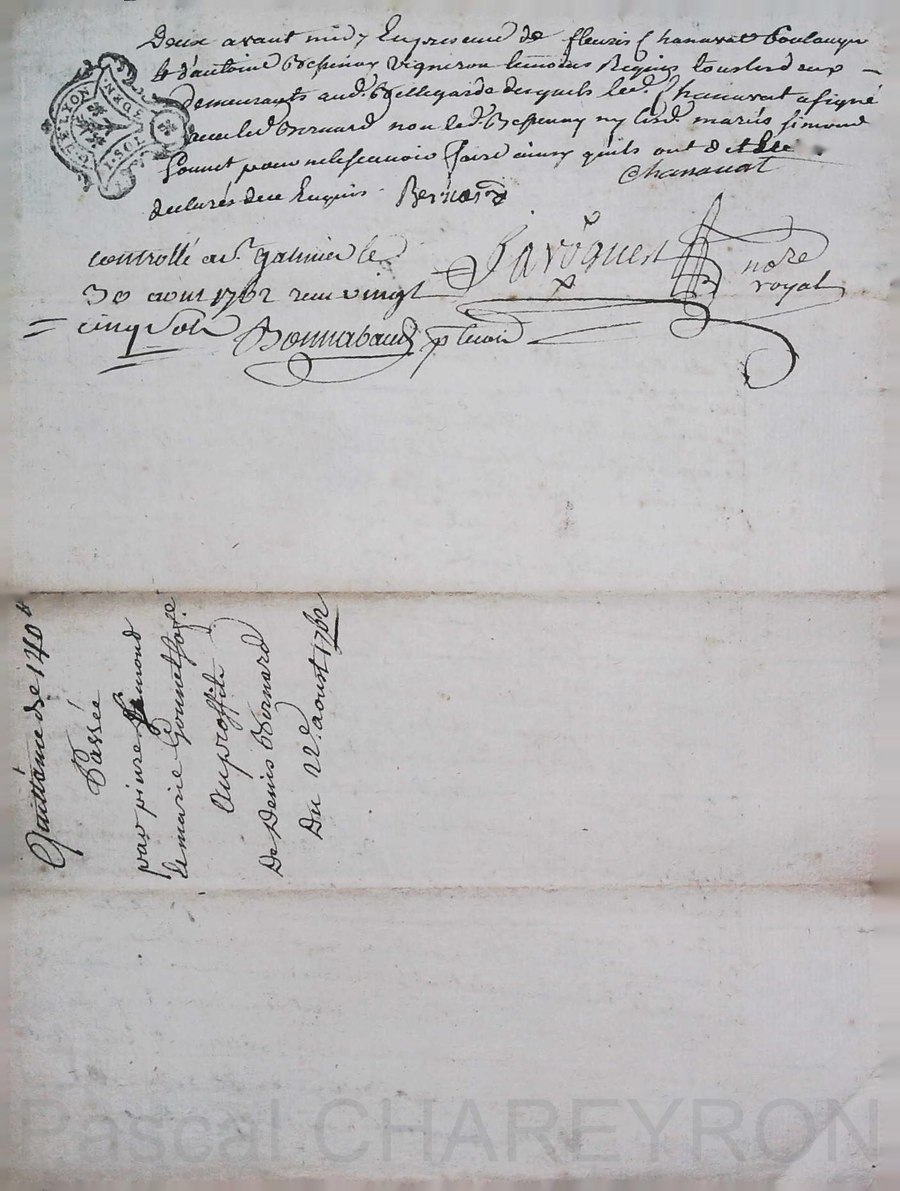 deux avant midy En presence de fleuris Chanavat Boulanger
& d'antoine vigneron temoins Requis tous les deux
demeurants aud. Bellegarde desquels led. Chanavat a signé
avec led. Bernard non led. ny lesd. mariés simond
Gonnet pour ne le scavoir faire ainsy qu'ils ont dit &
declarés de ce Enquis. Bernard Chanavat
controllé a st. galmier le
30 aout 1762 recu vingt
cinq sols Bonnabaud
Javogues nore
royal
GEN. DE LYON
Quittance de 140
Passée
par pierre simond
& marie Gonnet sa fe.
Au proffit
De Denis Bernard
Du 22e. aoust 1762
Pascal CHAREYRON